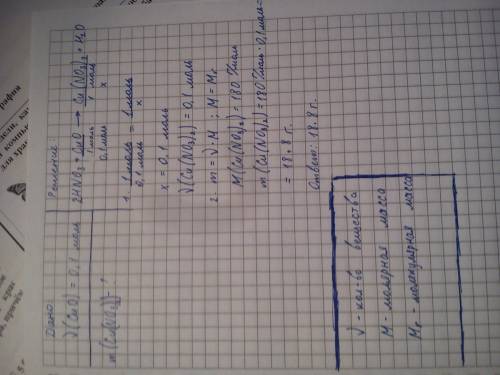 Дано
√(CuO) = 0,1 моль
m(Cu(NO₃)₂) - ?
Решение
2HNO₃ + CuO → Cu(NO₃)₂ + H₂O
1 моль 1 моль
0,1 моль x
1. 1 моль / 0,1 моль = 1 моль / x
x = 0,1 моль
√(Cu(NO₃)₂) = 0,1 моль
2. m = √·M ; M = Mr
M(Cu(NO₃)₂) = 180 г/моль
m(Cu(NO₃)₂) = 180 г/моль · 0,1 моль =
= 18,8 г.
Ответ: 18,8 г.
√ - кол-во вещества
M - молярная масса
Mr - молекулярная масса